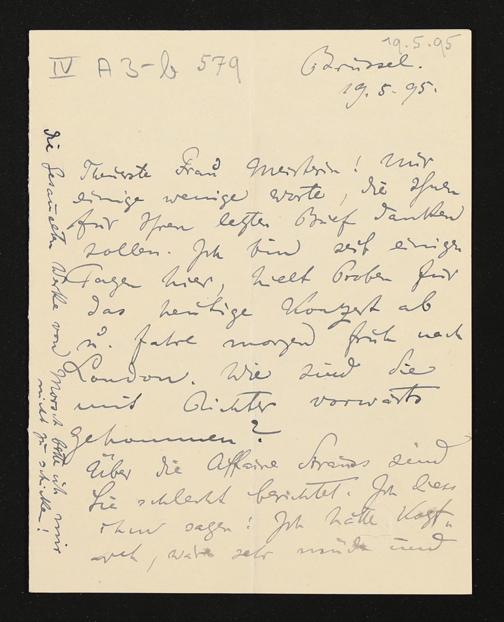 19.5.95
IV A 3-b 579
Brüssel.
19. 5. 95.
Theuerste Frau Meisterin! Nur
einige wenige Worte, die Ihnen
für Ihren letzten Brief danken
sollen. Ich bin seit einigen
Tagen hier, hielt Proben für
das heutige Konzert ab
u. fahre morgen früh nach
London. Wie sind Sie
mit Richter vorwärts
gekommen?
Über die Affaire Strauss sind
Sie schlecht berichtet. Ich liess
ihm sagen: Ich hätte Kopf-
weh, wäre sehr müde und
Die Gesammelten Werke von Morsch bitte ich mir
nicht zu schicken!